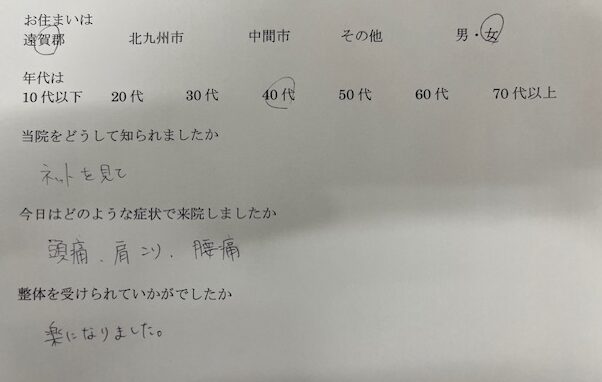 お住まいは
遠賀郡 北九州市 中間市 その他 男・女
年代は
10代以下 20代 30代 40代 50代 60代 70代以上
当院をどうして知られましたか
ネットを見て
今日はどのような症状で来院しましたか
頭痛、肩こり、腰痛
整体を受けられていかがでしたか
楽になりました。